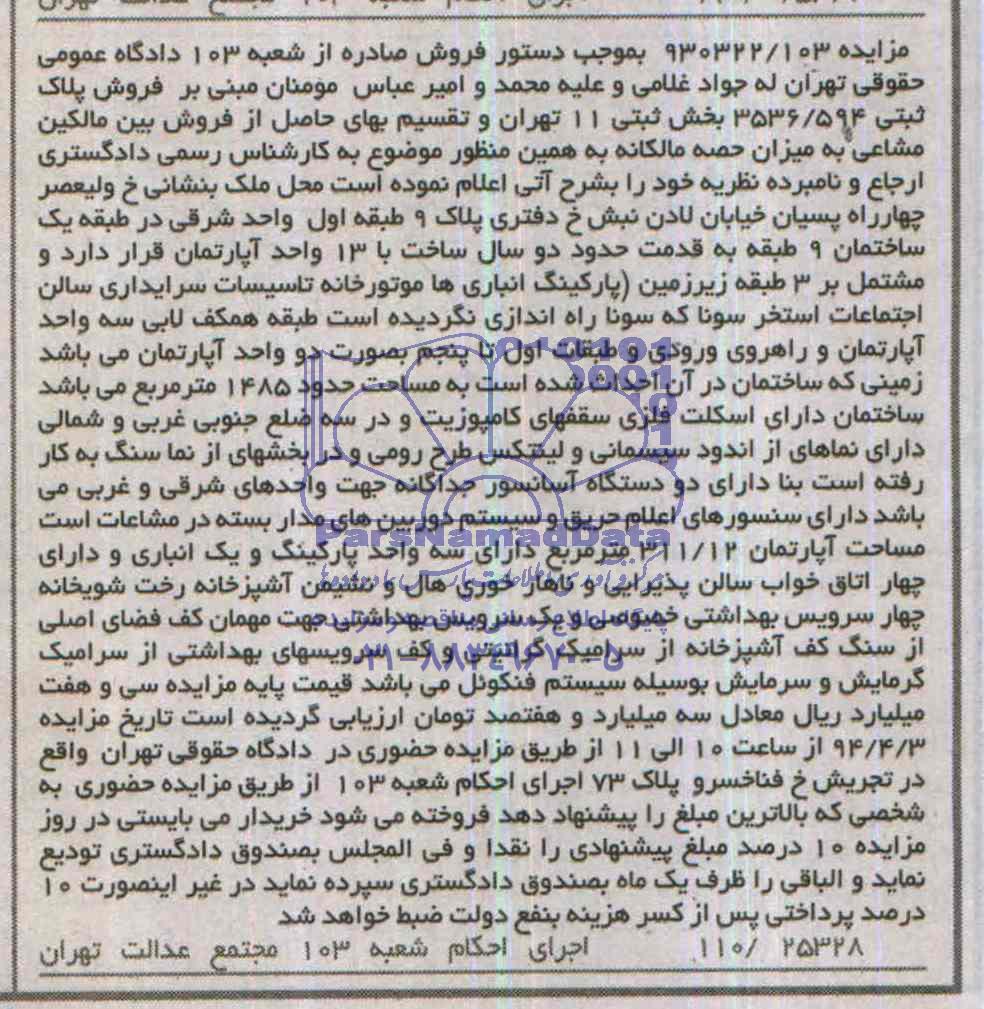 مزایده ۹۳۰۳۲۲/۱۰۳ بموجب دستور فروش صادره از شعبه ۱۰۳ دادگاه عمومی
حقوقی تهران له جواد غلامی و علیه محمد و امیر عباس مومنان مبنی بر فروش پلاک
ثبتی ۳۵۳۶/۵۹۴ بخش ثبتی ۱۱ تهران و تقسیم بهای حاصل از فروش بین مالکین
مشاعی به میزان حصه مالکانه به همین منظور موضوع به کارشناس رسمی دادگستری
ارجاع و نامبرده نظریه خود را بشرح آتی اعلام نموده است محل ملک بنشانی خ ولیعصر
چهارراه پسیان خیابان لادن نبش خ دفتری پلاک ۹ طبقه اول واحد شرقی در طبقه یک
ساختمان ۹ طبقه به قدمت حدود دو سال ساخت با ۱۳ واحد آپارتمان قرار دارد و
مشتمل بر ۳ طبقه زیرزمین (پارکینگ انباری ها موتورخانه تاسیسات سرایداری سالن
اجتماعات استخر سونا که سونا راه اندازی نگردیده است طبقه همکف لابی سه واحد
آپارتمان و راهروی ورودی و طبقات اول تا پنجم بصورت دو واحد آپارتمان می باشد
زمینی که ساختمان در آن احداث شده است به مساحت حدود ۱۴۸۵ مترمربع می باشد
ساختمان دارای اسکلت فلزی سقفهای کامپوزیت و در سه ضلع جنوبی غربی و شمالی
دارای نماهای از اندود سیسمانی و لیتتکس طرح رومی و در بخشهای از نما سنگ به کار
رفته است بنا دارای دو دستگاه آسانسور جداگانه جهت واحدهای شرقی و غربی می
باشد دارای سنسور های اعلام حریق و سیستم دوربین های مدار بسته در مشاعات است
ParsNamadData
مساحت آپارتمان ۳۱۱/۱۲ مترمربع دارای سه واحد پارکینگ و یک انباری و دارای
چهار اتاق خواب سالن پذیرایی و ناهار خوری هال و نشیمن آشپزخانه رخت شویخانه
چهار سرویس بهداشتی خصوصی و یک سرویس بهداشتی جهت مهمان کف فضای اصلی
از سنگ کف آشپزخانه از سرامیک گرانیتی و کف سرویسهای بهداشتی از سرامیک
۰۲۱-۸۸۳۴۹۶۷۰-۵
گرمایش و سرمایش بوسیله سیستم فنکوئل می باشد قیمت پایه مزایده سی و هفت
میلیارد ریال معادل سه میلیارد و هفتصد تومان ارزیابی گردیده است تاریخ مزایده
۹۴/۴/۳ از ساعت ۱۰ الی ۱۱ از طریق مزایده حضوری در دادگاه حقوقی تهران واقع
در تجریش خ فناخسرو پلاک ۷۳ اجرای احکام شعبه ۱۰۳ از طریق مزایده حضوری به
شخصی که بالاترین مبلغ را پیشنهاد دهد فروخته می شود خریدار می بایستی در روز
مزایده ۱۰ درصد مبلغ پیشنهادی را نقدا و فی المجلس بصندوق دادگستری تودیع
نماید و الباقی را ظرف یک ماه بصندوق دادگستری سپرده نماید در غیر اینصورت ۱۰
درصد پرداختی پس از کسر هزینه بنفع دولت ضبط خواهد شد
۲۵۳۲۸ /۱۱۰ اجرای احکام شعبه ۱۰۳ مجتمع عدالت تهران